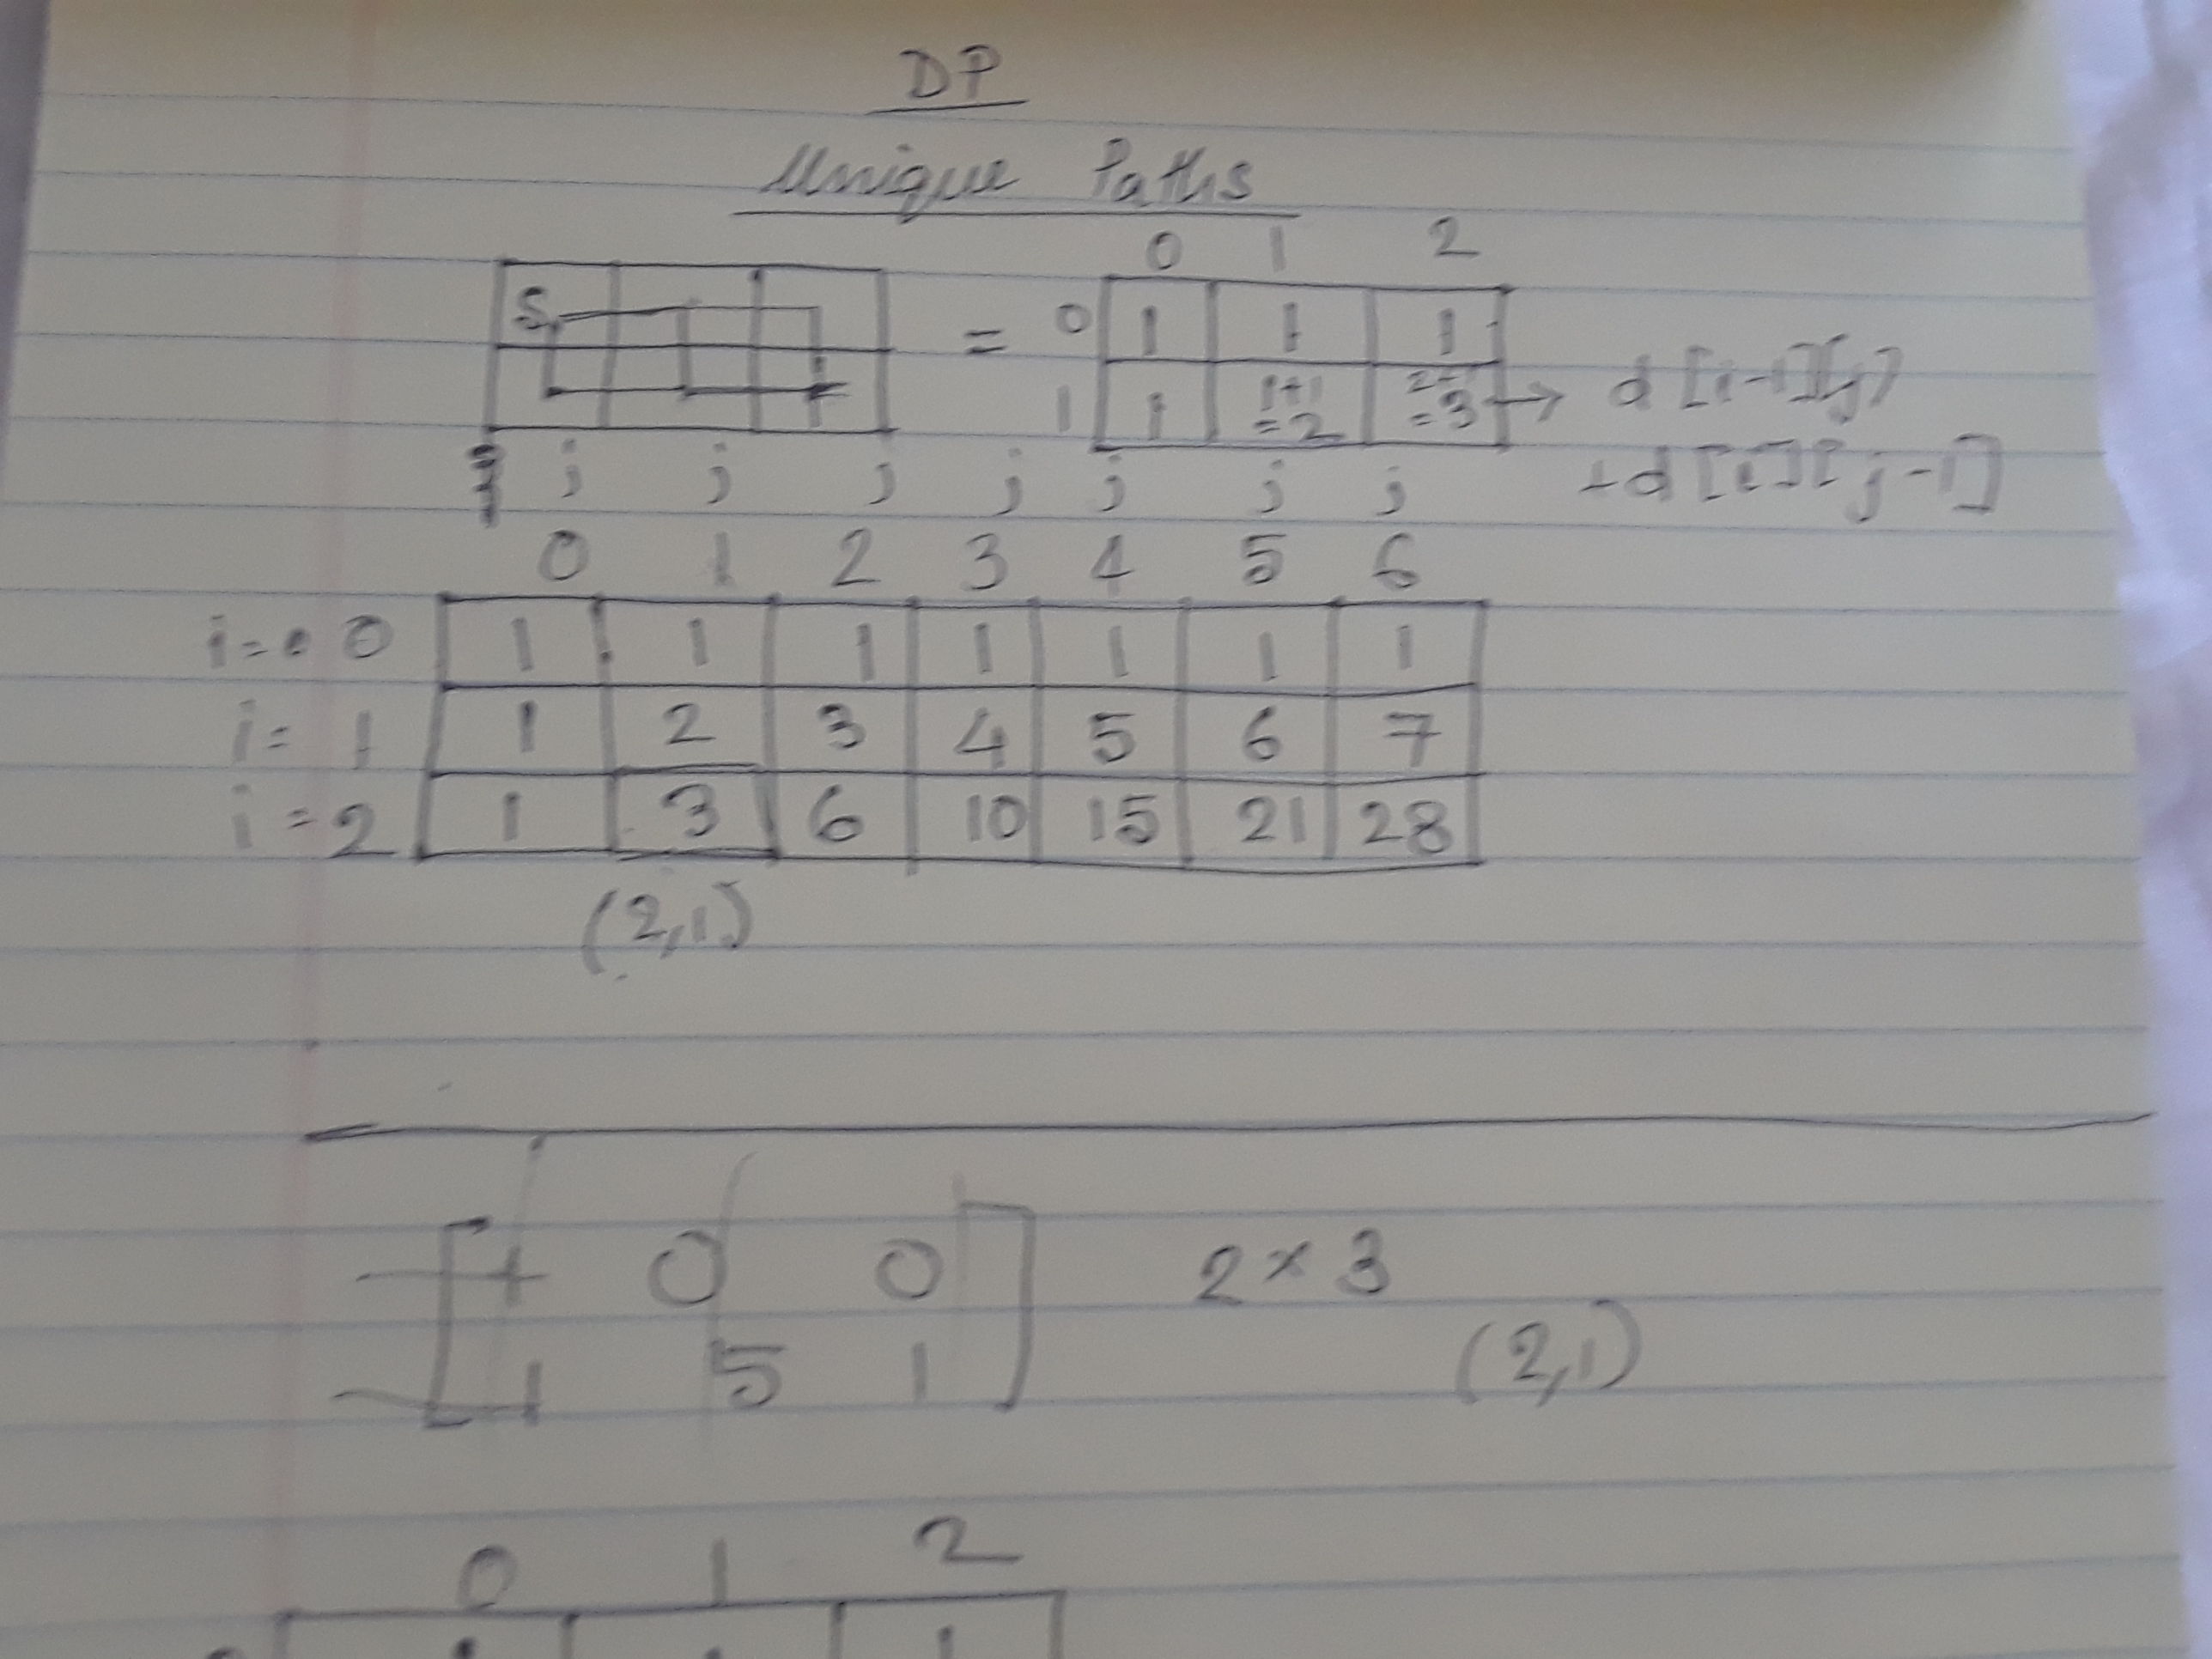 DP
Unique Paths
0 1 2
S = 0 1 1 1
1 1 1+1 =2 =3 → d[i-1][j]
+d[i][j-1]
j j j j j j j
0 1 2 3 4 5 6
i= 0 1 1 1 1 1 1 1
i= 1 1 2 3 4 5 6 7
i=2 1 3 6 10 15 21 28
(2,1)
0 0 2×3
1 5 1 (2,1)
0 1 2